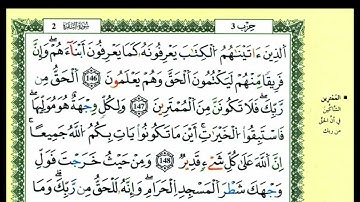 2 سُورَةُ البَقَرَة حِزْب 3
الذِينَ ءَاتَيْنَٰهُمُ الْكِتَٰبَ يَعْرِفُونَهُۥ كَمَا يَعْرِفُونَ أَبْنَآءَهُمْ وَإِنَّ
فَرِيقاً مِّنْهُمْ لَيَكْتُمُونَ الْحَقَّ وَهُمْ يَعْلَمُونَ 146 اَلْحَقُّ مِن
رَّبِّكَ فَلَا تَكُونَنَّ مِنَ الْمُمْتَرِينَ 147 وَلِكُلٍّ وِجْهَةٌ هُوَ مُوَلِّيهَا
فَاسْتَبِقُوا الْخَيْرَٰتِ أَيْنَ مَا تَكُونُوا يَاتِ بِكُمُ اللَّهُ جَمِيعاً
إِنَّ اللَّهَ عَلَىٰ كُلِّ شَےْءٍ قَدِيرٌ 148 وَمِنْ حَيْثُ خَرَجْتَ فَوَلِّ
وَجْهَكَ شَطْرَ الْمَسْجِدِ الْحَرَامِ وَإِنَّهُۥ لَلْحَقُّ مِن رَّبِّكَ وَمَا
الْمُمْتَرِينَ
الشَّاكِّينَ
من ربك